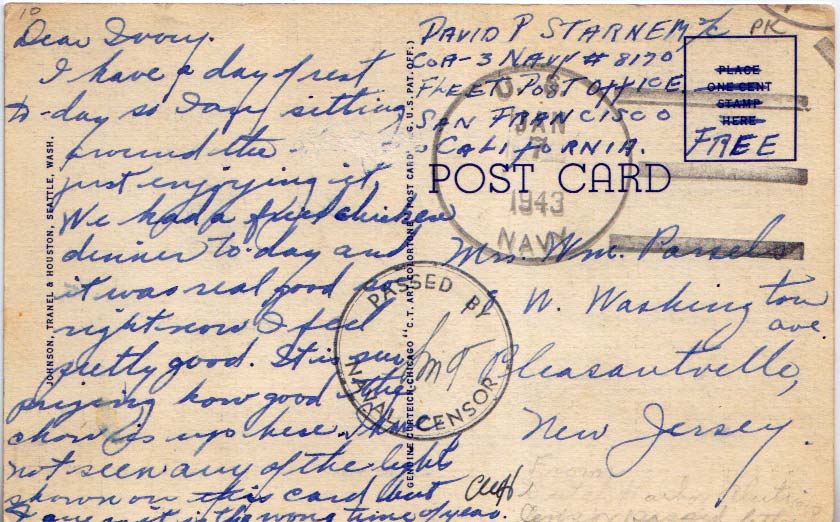 10
Dear Ivory.
I have a day of rest
to-day so I am sitting
around the
just enjoying it.
We had a fried chicken
dinner to-day and
it was real good so
right now I feel
pretty good. It is sur
prising how good the
chow is up here. I have
not seen any of the lights
shown on this card but
I guess it is the wrong time of year.
JOHNSON, TRANEL & HOUSTON, SEATTLE, WASH.
GENUINE CURTEICH-CHICAGO "C.T. ART-COLORTONE" POST CARD (REG. U.S. PAT. OFF.)
DAVID P STARNE
COA-3 NAVY # 8170
FLEET POST OFFICE.
SAN FRANCISCO
CALIFORNIA.
PK
PLACE
ONE CENT
STAMP
HERE
FREE
U.S.
JAN
7
1943
NAVY
POST CARD
PASSED BY
NAVAL CENSOR
Mrs. Wm. Parsels
W. Washington
ave
Pleasantville,
New Jersey.